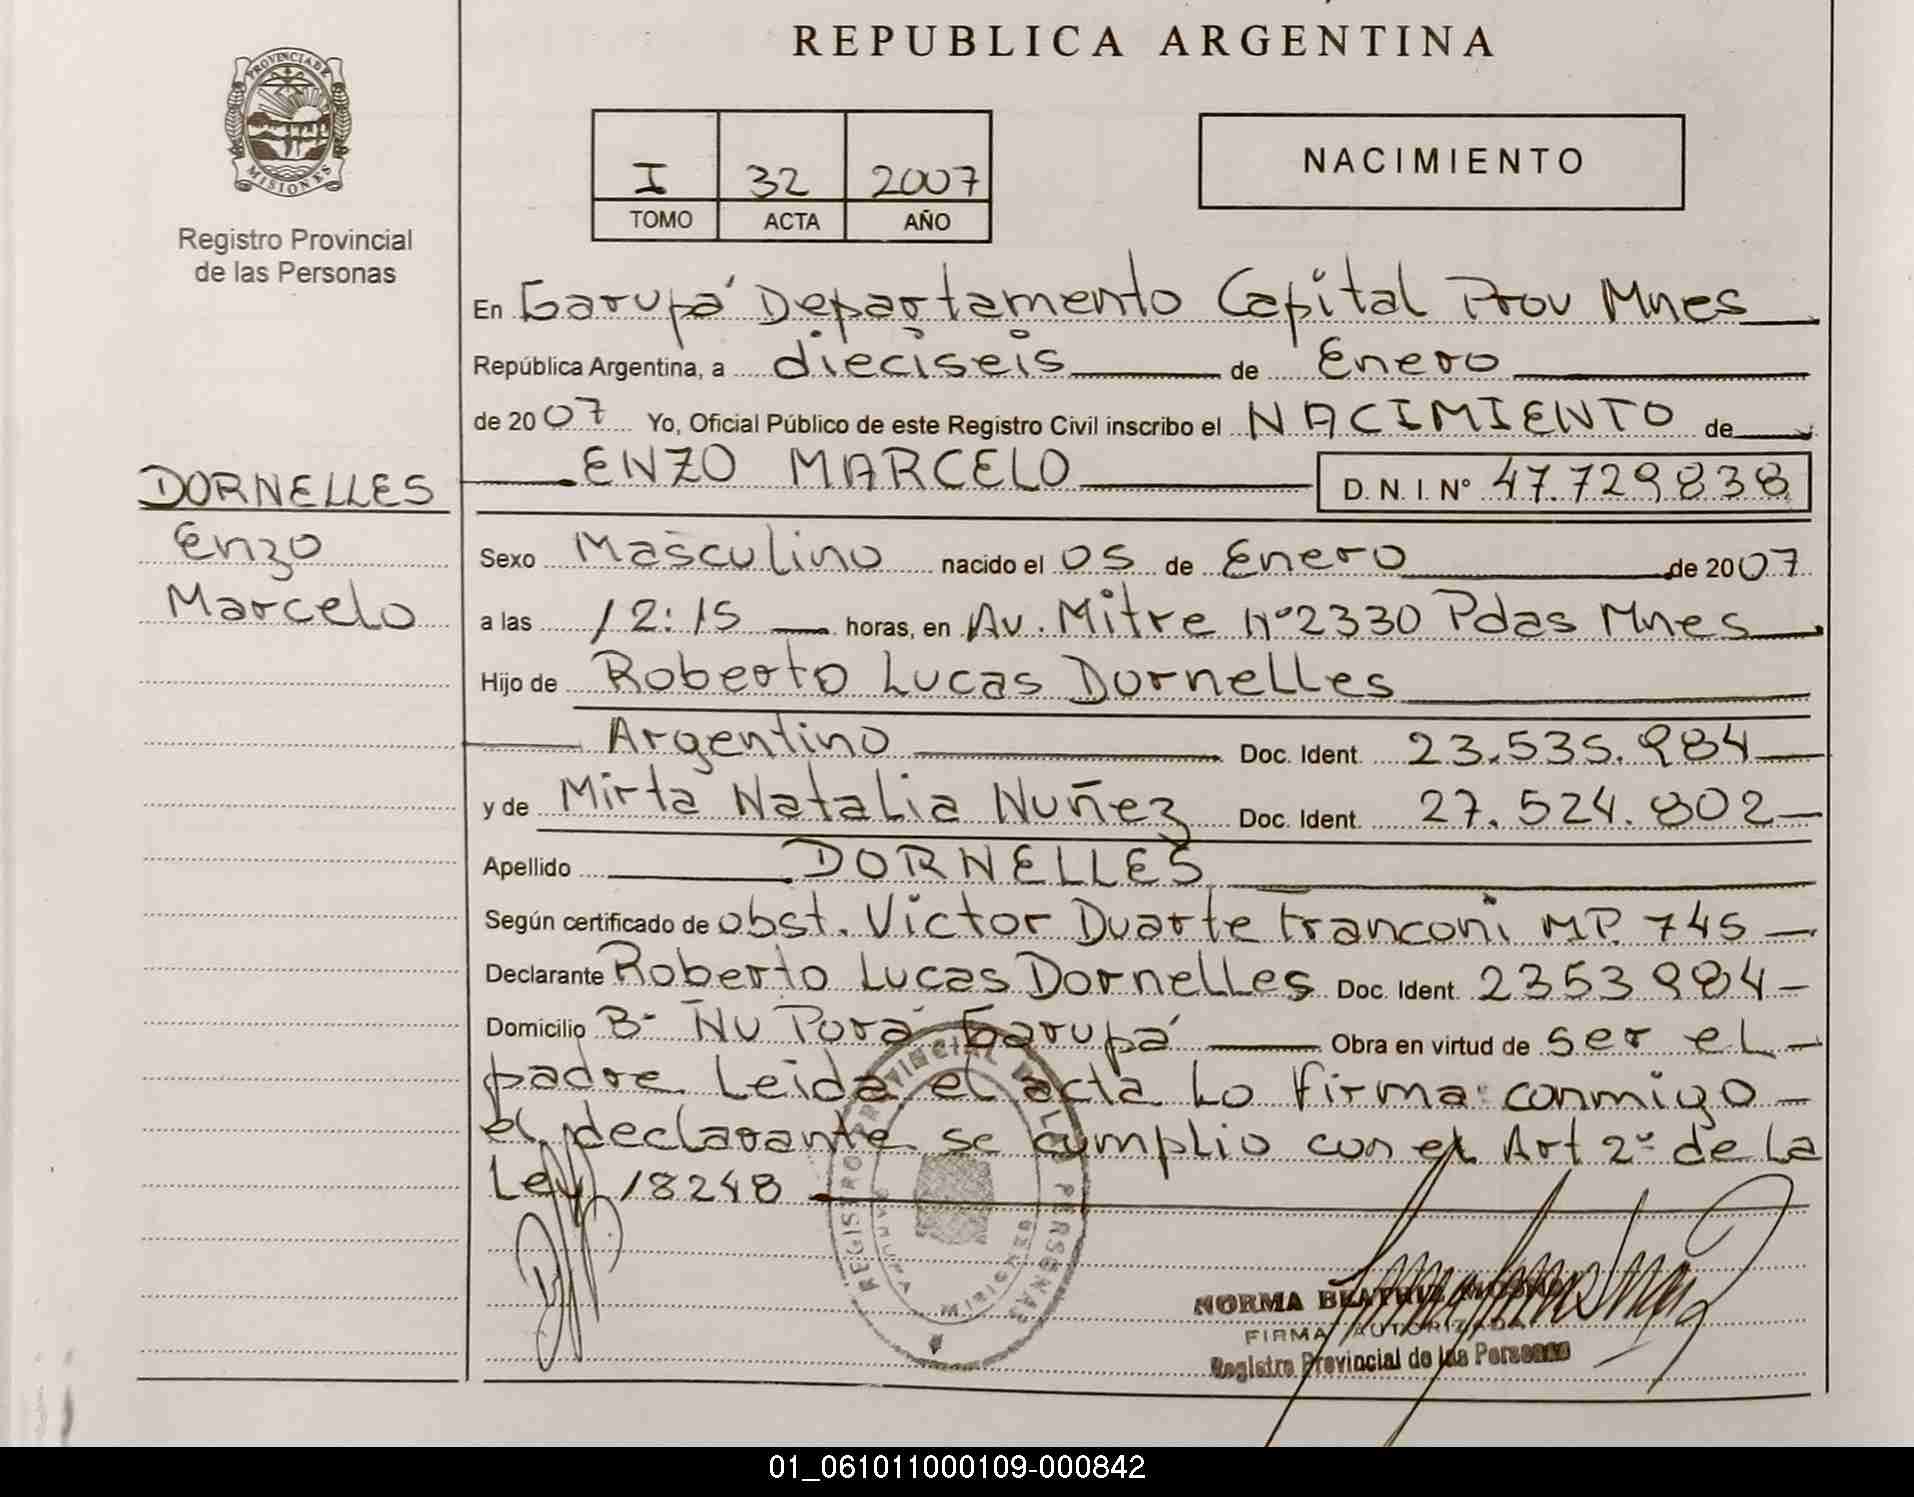 REPUBLICA ARGENTINA
PROVINCIA DE
MISIONES
Registro Provincial
de las Personas
I 32 2007
TOMO ACTA AÑO
NACIMIENTO
En Garupá Departamento Capital Prov Mnes
República Argentina, a dieciseis de Enero
de 2007 Yo, Oficial Público de este Registro Civil inscribo el NACIMIENTO de
ENZO MARCELO D. N. I. Nº 47.729838
DORNELLES
Enzo
Marcelo
Sexo Masculino nacido el 05 de Enero de 2007
a las 12:15 horas, en Av. Mitre Nº2330 Pdas Mnes
Hijo de Roberto Lucas Dornelles
Argentino Doc. Ident. 23.535.984
y de Mirta Natalia Nuñez Doc. Ident. 27.524.802
Apellido DORNELLES
Según certificado de obst. Victor Duarte Franconi MP. 745
Declarante Roberto Lucas Dornelles Doc. Ident. 2353984
Domicilio Bº Ñu Porá Garupá Obra en virtud de ser el
padre Leida el acta Lo firma conmigo
el declarante se cumplio con el Art 2º de La
Ley 18248
REGISTRO PROVINCIAL DE LAS PERSONAS
GARUPA MISIONES
NORMA BEATRIZ
FIRMA AUTORIZADA
Registro Provincial de las Personas
01_061011000109-000842